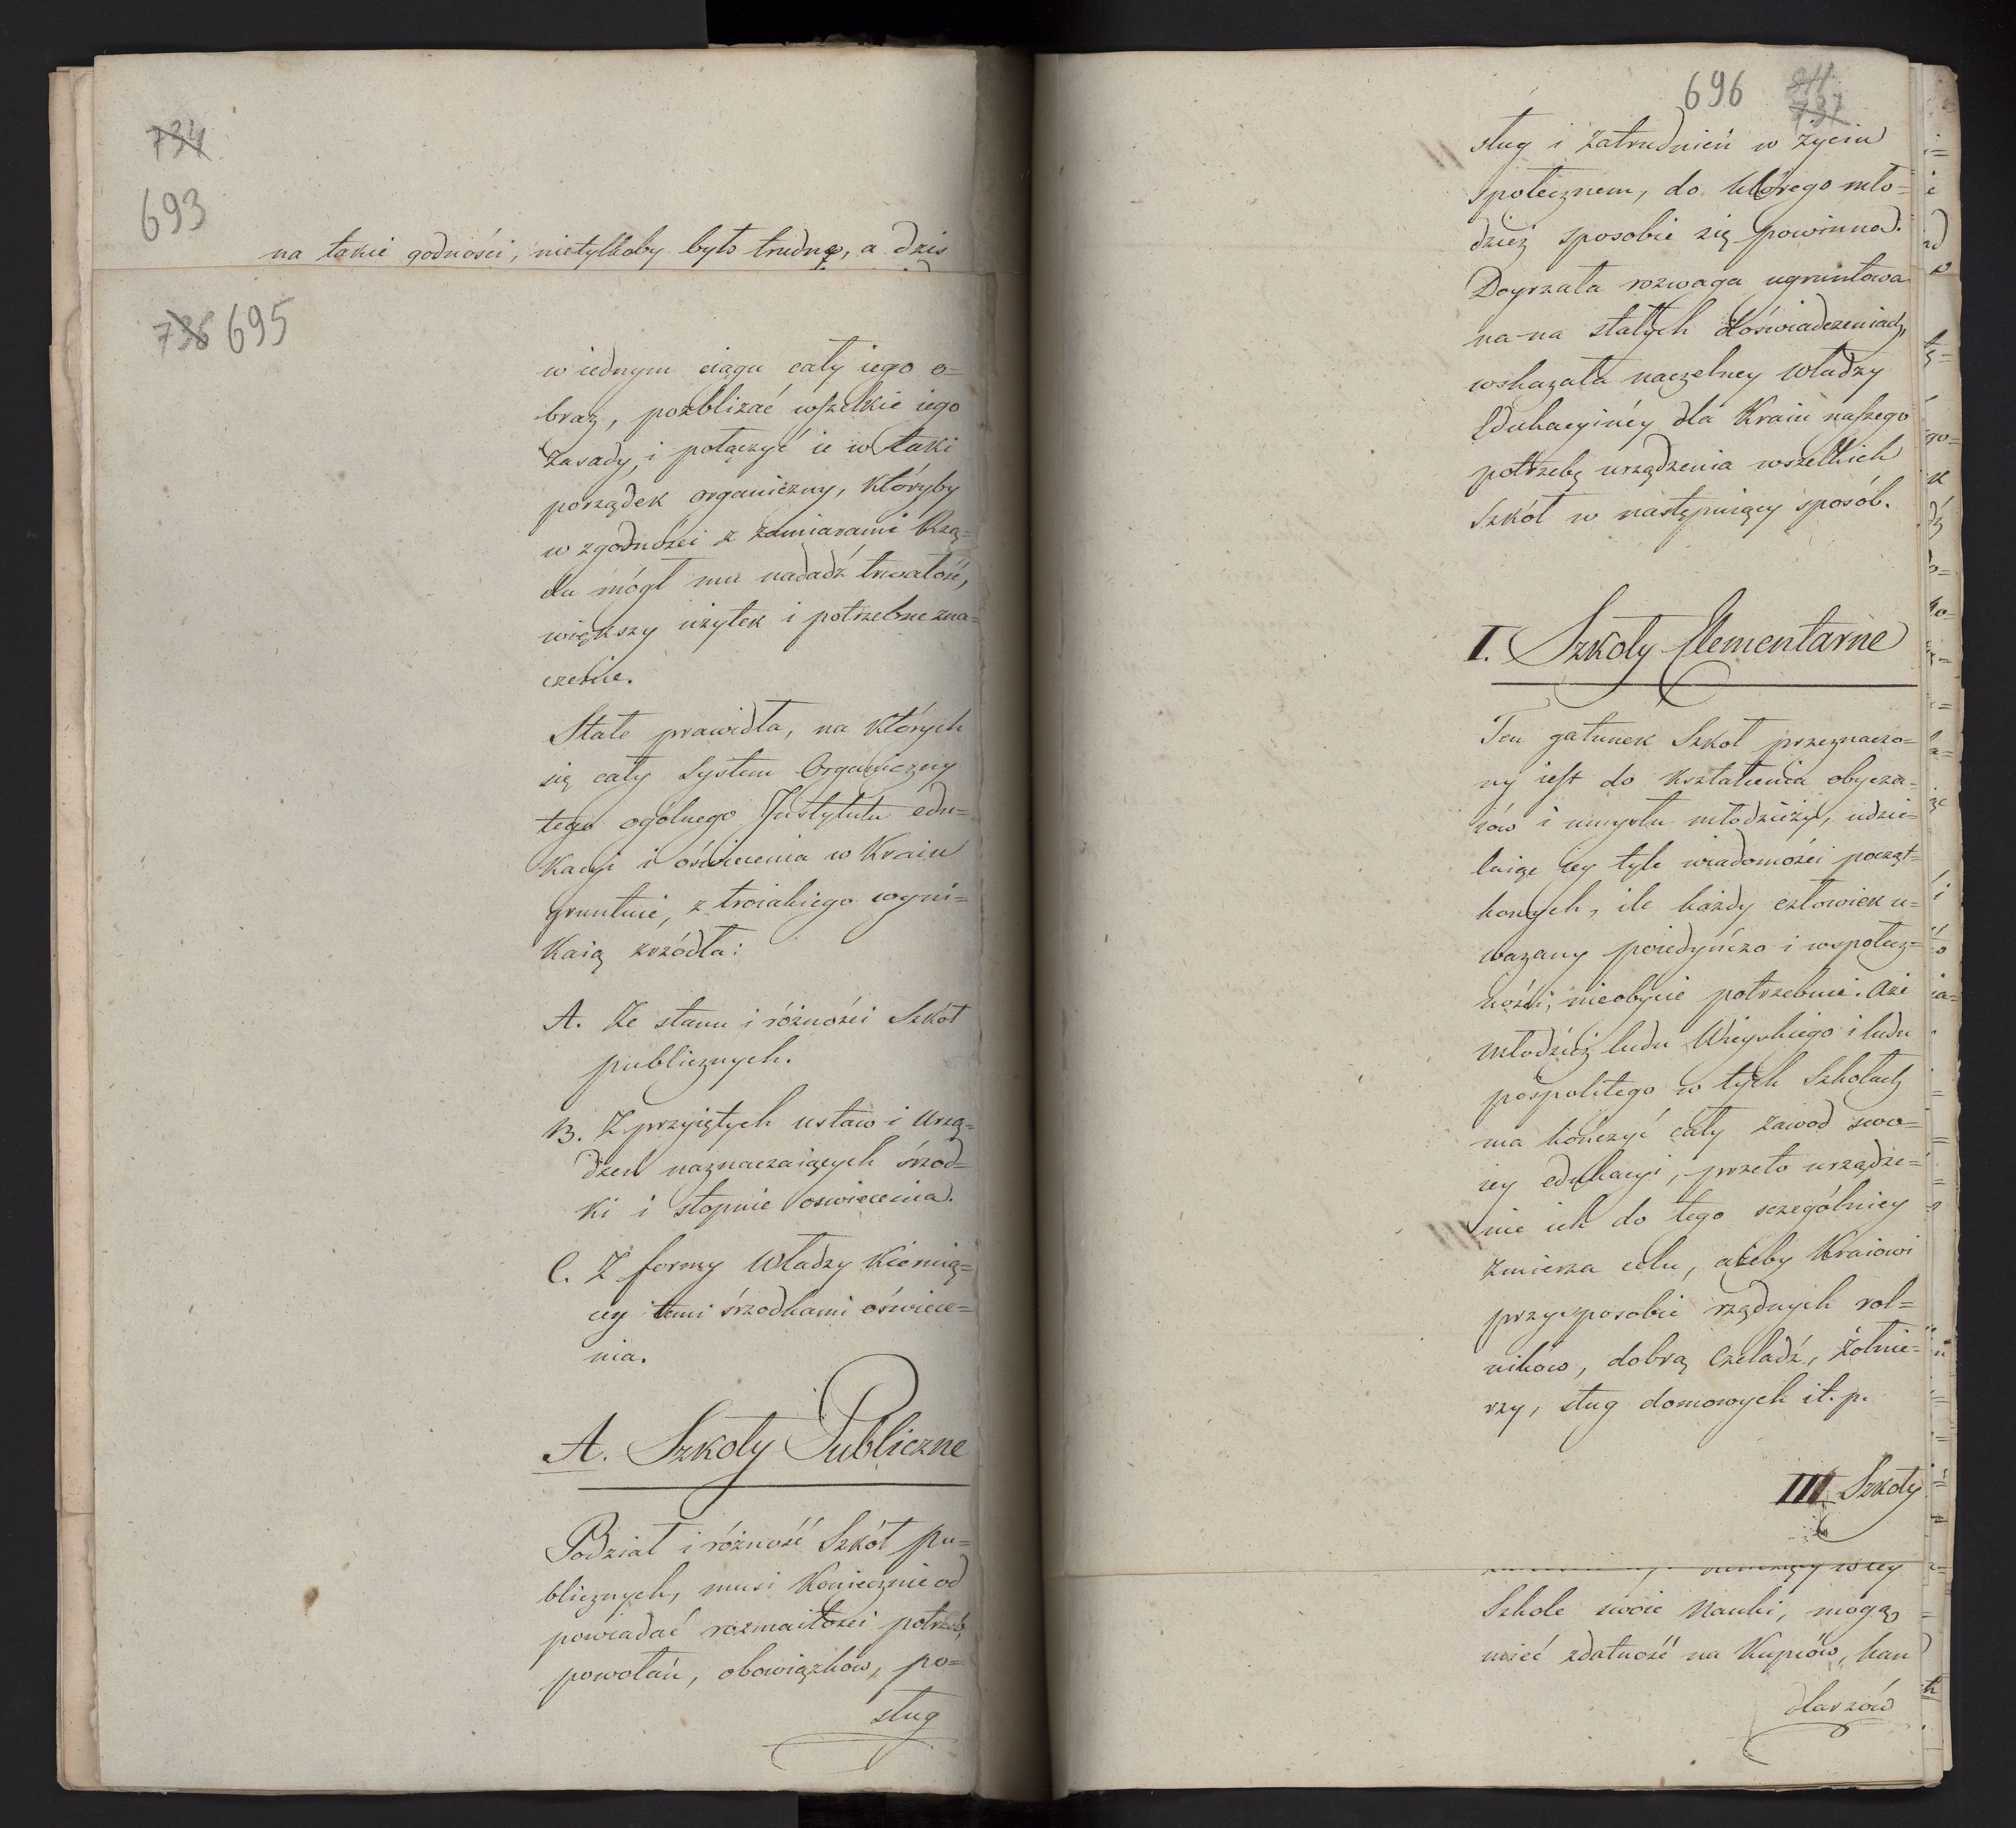 734
693
na takie godności, nietylkoby było trudną, a dzis
736 695
w iednym ciągu cały iego o=
braz, pozbliżać wszelkie iego
zasady, i połączyć ie w taki
porządek organiczny, któryby
w zgodności z zamiarami Rzą=
du mógł mu nadadź trwałość,
większy użytek i potrzebne zna=
czenie.
Stałe prawidła, na których
się cały System Organiczny
tego ogolnego Instytutu edu=
kacyi i oświecenia w Kraiu
gruntuie, z troiakiego wyni=
kaią źrzódła:
A. Ze stanu i różności Szkół
publicznych.
B. Z przyiętych ustaw i urzą=
dzeń naznaczaiących śrzod=
ki i stopnie oswiecenia.
C. Z formy Władzy kieruią=
cey temi śrzodkami oświece=
nia.
A. Szkoły Publiczne
Podział i różność Szkół pu=
blicznych, musi koniecznie od
powiadać rozmaitości potrzeb,
powołań, obowiązków, po=
sług
696 811
737
sług i zatrudnień w życiu
społecznem, do którego mło=
dzież sposobić się powinna.
Doyrzała rozwaga ugruntowa
na na stałych doświadczeniach,
wskazała naczelney Władzy
Edukacyinéy dla Kraiu naszego
potrzebę urządzenia wszelkich
Szkół w następuiący sposób.
I. Szkoły Elementarne
Ten gatunek Szkół przeznaczo=
ny iest do kształcenia obycza=
iów i umysłu młodzieży, udzie=
laiąc iey tyle wiadomości począt=
kowych, ile każdy człowiek u=
ważany poiedyńczo i w społecz=
ności, nieobycie potrzebuie. Aże
młodzież ludu Wieyskiego i ludu
pospolitego w tych Szkołach
ma kończyć cały zawod swo=
iey edukacyi, przeto urządze=
nie ich do tego szczególniey
zmierza celu, ażeby Kraiowi
przysposobić rządnych rol=
ników, dobrą Czeladź, żołnie=
rzy, sług domowych i t. p.
III Szkoły
w tey
Szkole swoie Nauki, mogą
mieć zdatność na Kupców, han
dlarzów